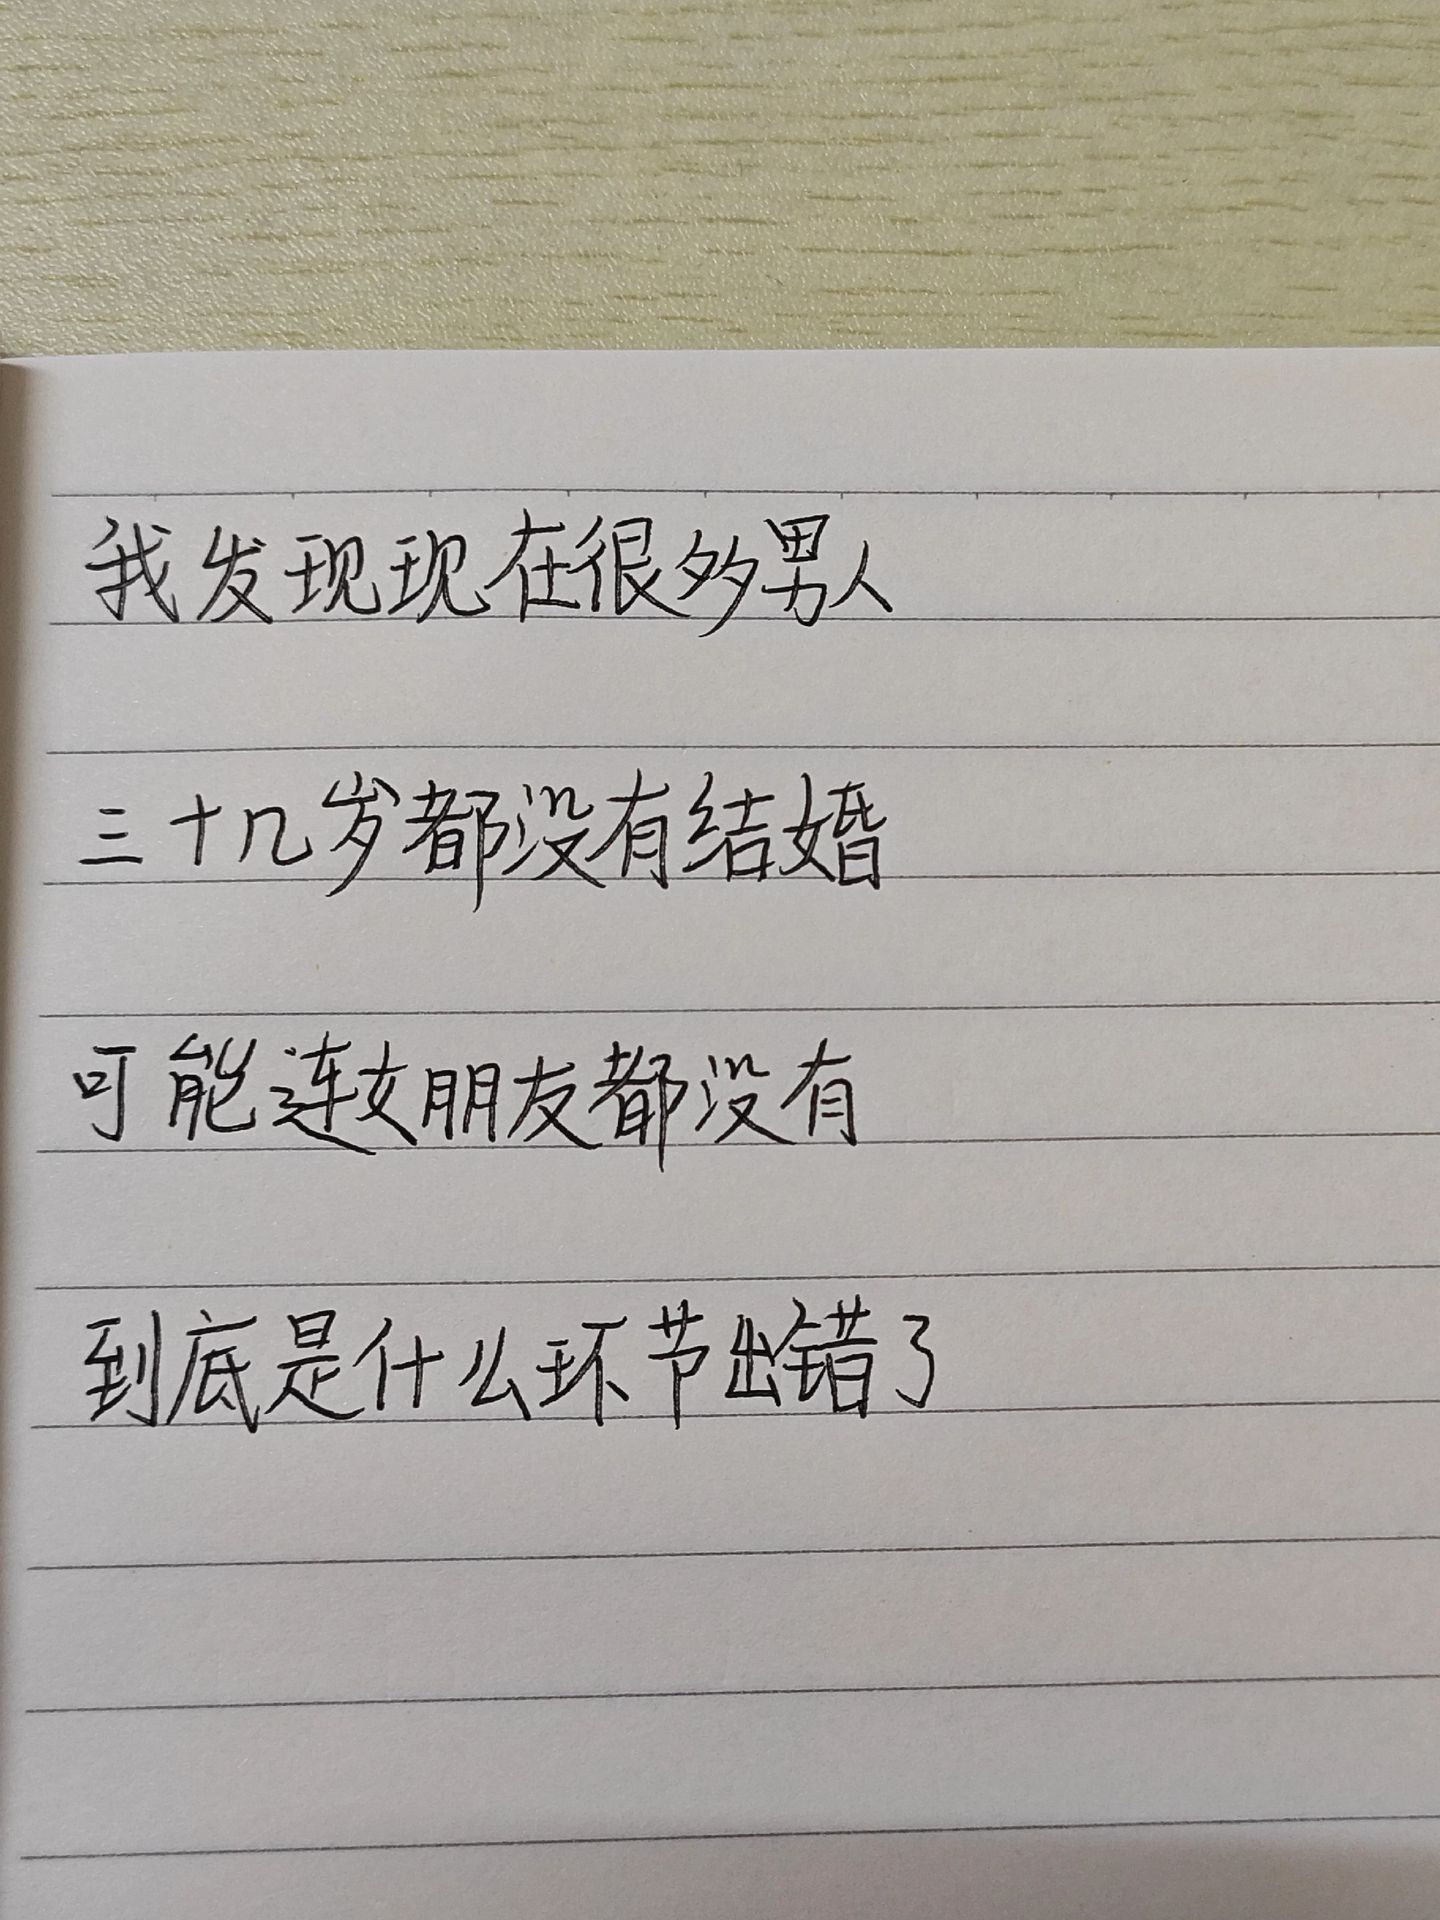 我发现现在很多男人
三十几岁都没有结婚
可能连女朋友都没有
到底是什么环节出错了